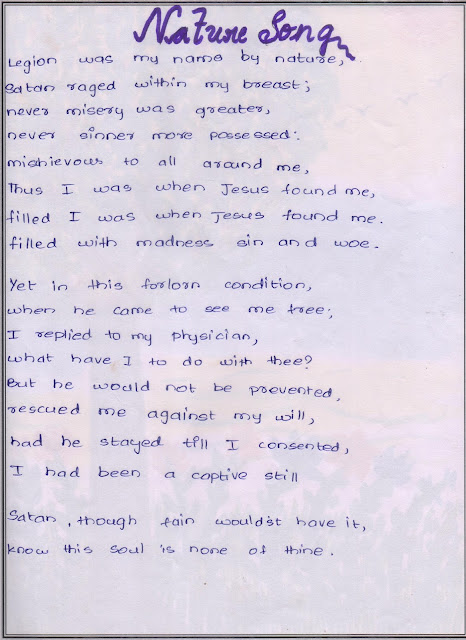 Nature Song
Legion was my name by nature,
Satan raged within my breast;
never misery was greater,
never sinner more possessed:
mischievous to all around me,
Thus I was when Jesus found me,
filled I was when Jesus found me.
filled with madness sin and woe.
Yet in this forlorn condition,
when he came to see me tree;
I replied to my physician,
what have I to do with thee?
But he would not be prevented,
rescued me against my will,
had he stayed till I consented,
I had been a captive still
Satan, though fain would'st have it,
know this soul is none of thine.